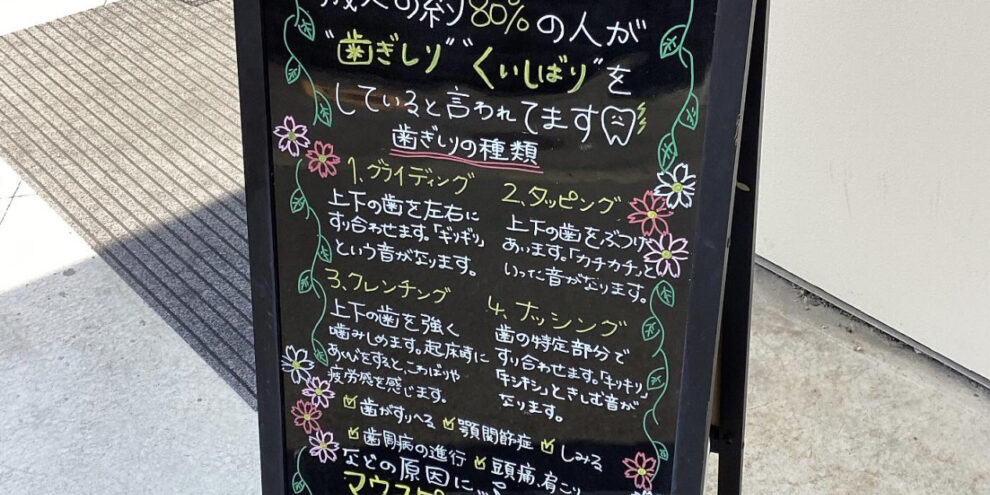 成人の約80%の人が
"歯ぎしり""くいしばり"を
していると言われてます
歯ぎしりの種類
1、グライディング
上下の歯を左右に
すり合わせます。「ギリギリ」
という音がなります。
2、タッピング
上下の歯をぶつけ
あいます。「カチカチ」と
いった音がなります。
3、クレンチング
上下の歯を強く
噛みしめます。起床時に
あくびをすると、こわばりや
疲労感を感じます。
4、ナッシング
歯の特定部分で
すり合わせます。「キリキリ」
「キシキシ」ときしむ音が
なります。
歯がすりへる 顎関節症 しみる
歯周病の進行 頭痛、肩こり
などの原因に
マウスピ